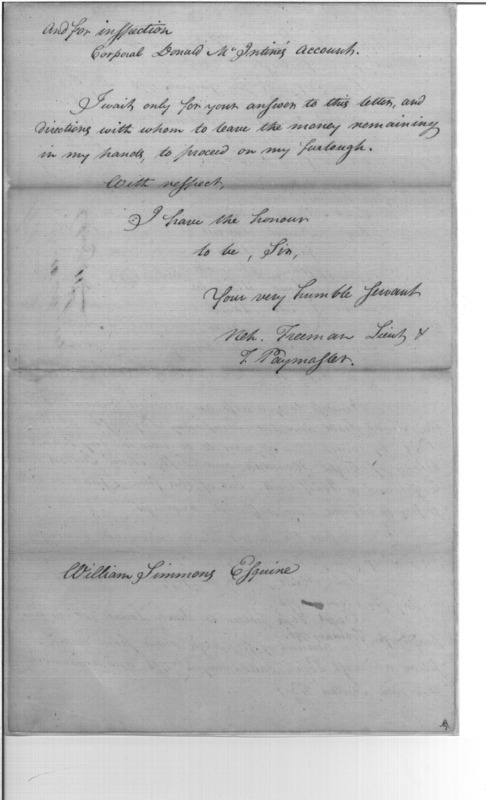 And for inspection
Corporal Donald McIntire's Account.
I wait only for your answer to this letter, and
directions with whom to leave the money remaining
in my hands, to proceed on my furlough.
With respect,
I have the honour
to be, Sir,
Your very humble Servant
Neh. Freeman Lieut &
Paymaster.
William Simmons Esquire